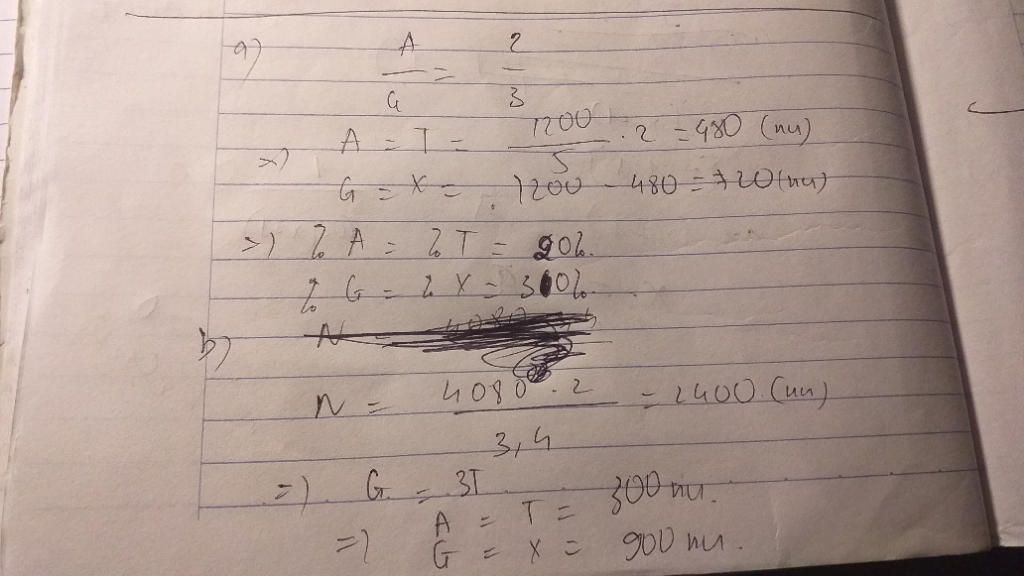 a) A/G = 2/3
=) A = T = 1200/5 . 2 = 480 (nu)
G = X = 1200 - 480 = 720 (nu)
=) % A = % T = 20%.
% G = % X = 30%.
b) N = 4080 . 2/3,4 = 2400 (nu)
=) G = 3T
=) A = T = 300 nu.
G = X = 900 nu.